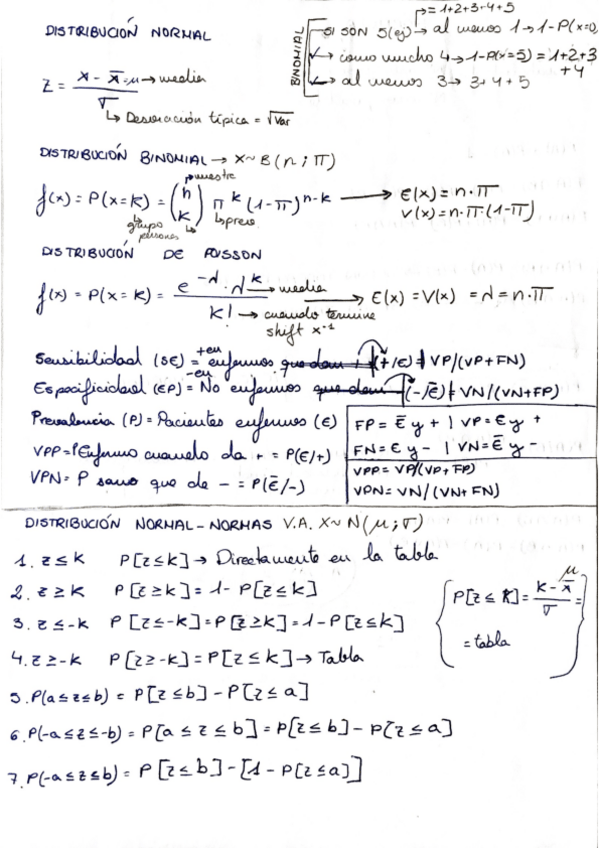 DISTRIBUCIÓN NORMAL
Z = (x - x̄=μ → media) / σ
↳ Desviación típica = √Var
BINOMIAL
= 1+2+3+4+5
SI SON 5(ej) → al menos 1 → 1-P(x=0)
→ como mucho 4 → 1-P(x=5) = 1+2+3
+4
→ al menos 3 → 3+4+5
DISTRIBUCIÓN BINOMIAL → X~B(n;π)
f(x) = P(x=k) = (n k) π^k (1-π)^n-k → E(x) = n·π
V(x) = n·π·(1-π)
muestra
grupo personas
↳ prev.
DISTRIBUCIÓN DE POISSON
f(x) = P(x=k) = e^-λ · λ^k / k! → E(x) = V(x) = λ = n·π
→ media
→ cuando termine
shift x⁻¹
Sensibilidad (SE) = +en enfermos que dan + (+/E) = VP/(VP+FN)
Especificidad (EP) = -en No enfermos que dan - (-/Ē) = VN/(VN+FP)
Prevalencia (P) = Pacientes enfermos (E)
VPP = P Enfermo cuando da + = P(E/+)
VPN = P sano que da - = P(Ē/-)
FP = Ē y + | VP = E y +
FN = E y - | VN = Ē y -
VPP = VP/(VP+FP)
VPN = VN/(VN+FN)
DISTRIBUCIÓN NORMAL - NORMAS V.A. X~N(μ;σ)
1. z≤k P[z≤k] → Directamente en la tabla
2. z≥k P[z≥k] = 1-P[z≤k]
3. z≤-k P[z≤-k] = P[z≥k] = 1-P[z≤k]
4. z≥-k P[z≥-k] = P[z≤k] → Tabla
{P[z≤k] = (k-x̄ μ)/σ =
= tabla}
5. P(a≤z≤b) = P[z≤b] - P[z≤a]
6. P(-a≤z≤-b) = P[a≤z≤b] = P[z≤b] - P[z≤a]
7. P(-a≤z≤b) = P[z≤b] - [1-P[z≤a]]